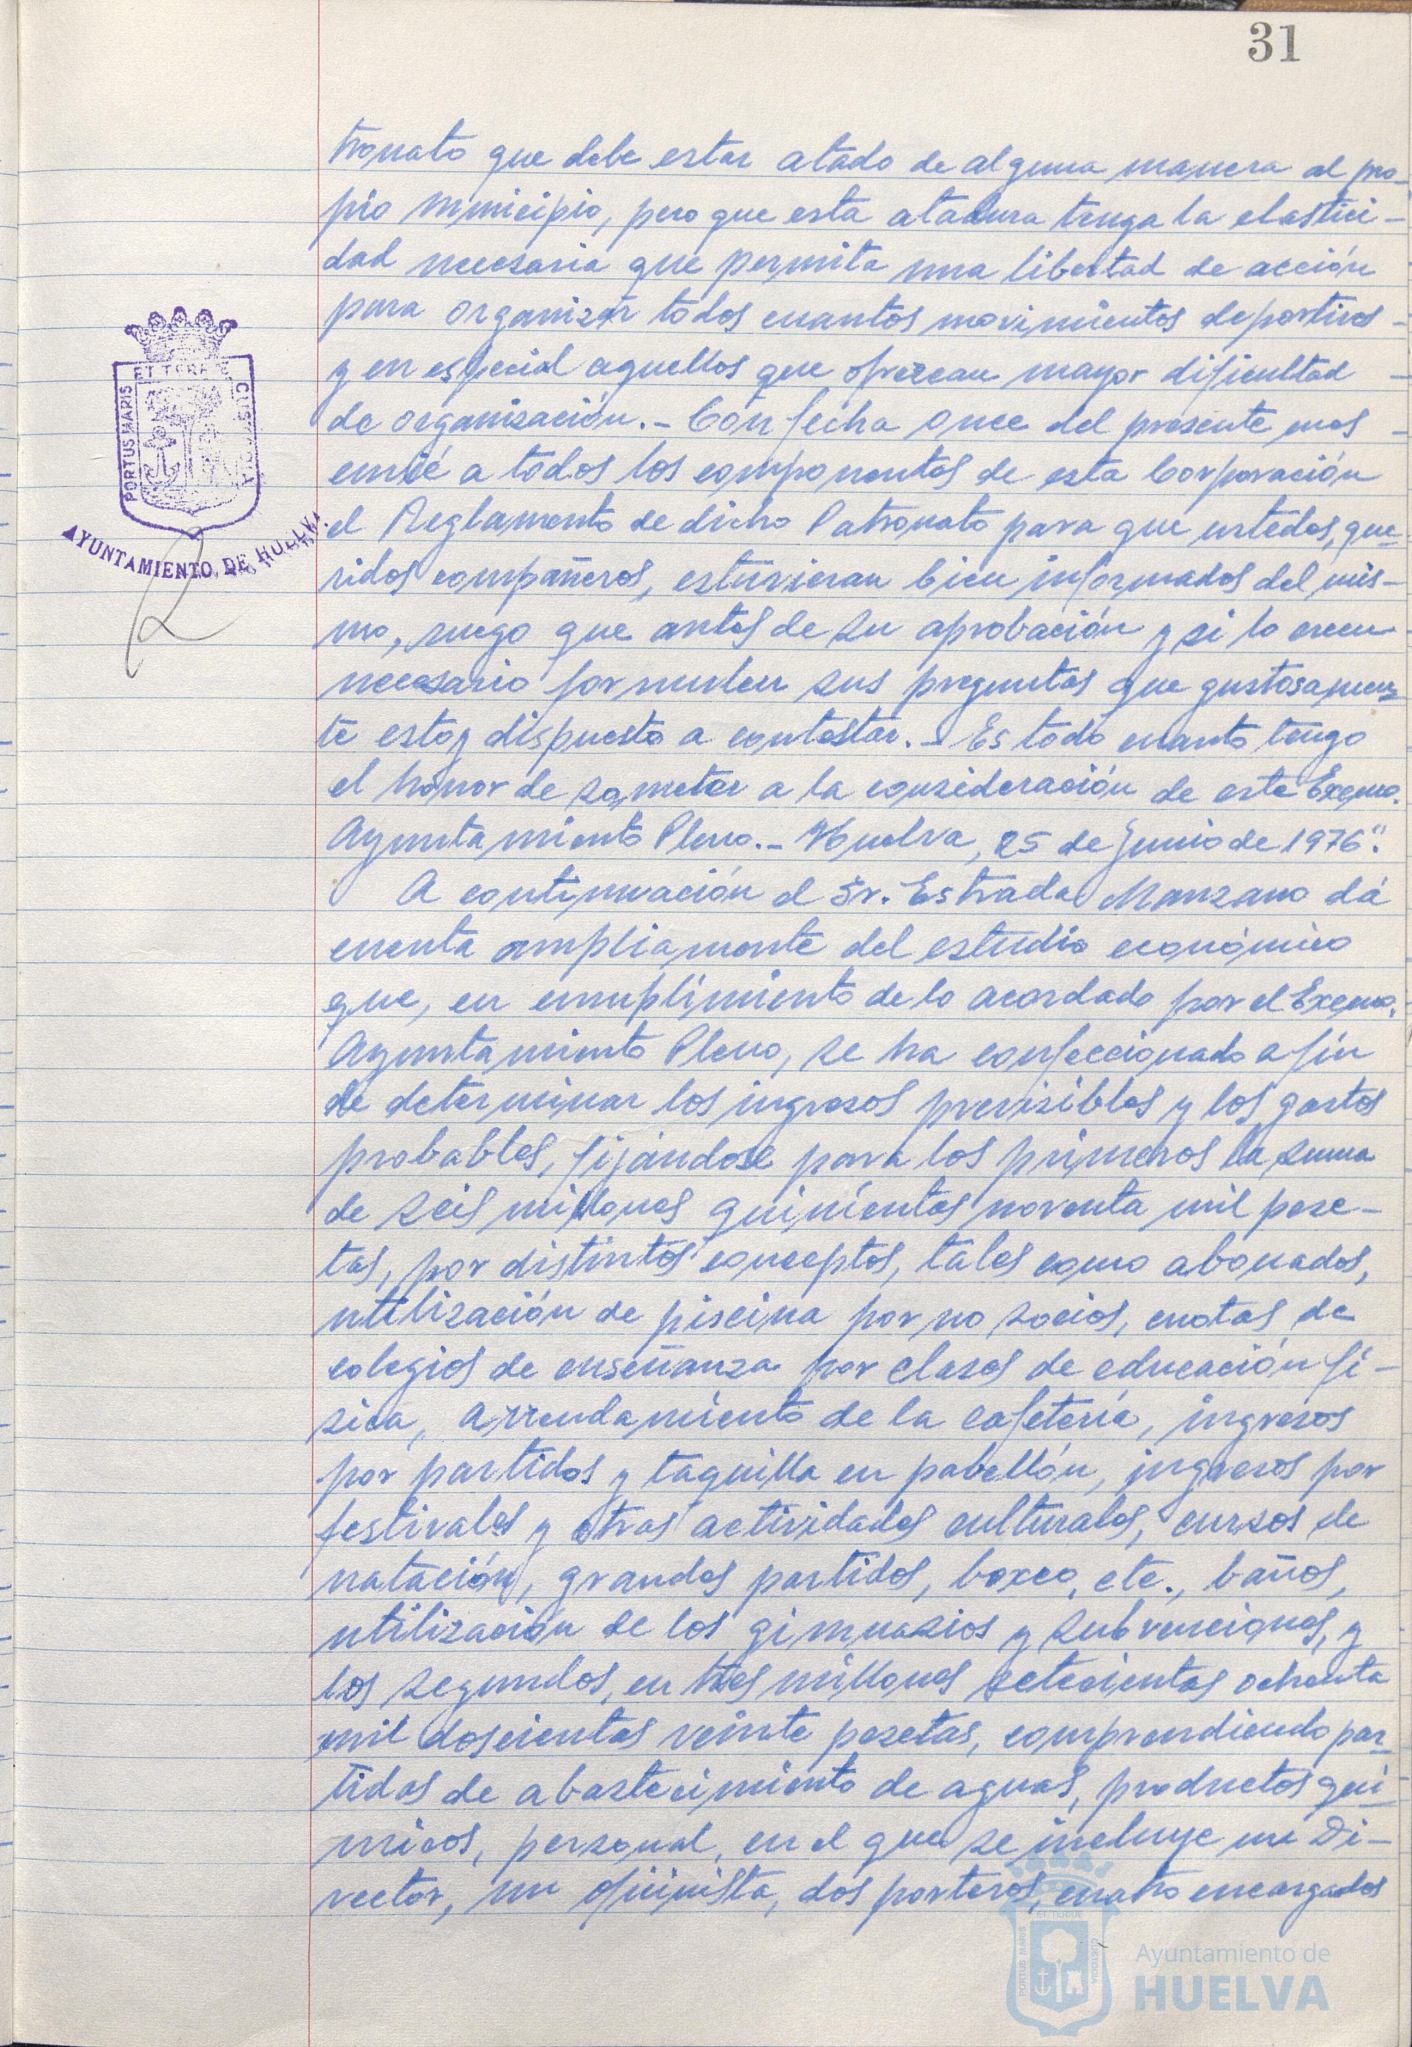 31
tronato que debe estar atado de alguna manera al pro-
pio Municipio, pero que esta atadura tenga la elastici-
dad necesaria que permita una libertad de acción
para organizar todos cuantos movimientos deportivos -
y en especial aquellos que ofrezcan mayor dificultad -
de organización.- Con fecha once del presente mes -
envié a todos los componentes de esta Corporación
el Reglamento de dicho Patronato para que ustedes, que-
ridos compañeros, estuvieran bien informados del mis-
mo, ruego que antes de su aprobación y si lo creen
necesario formulen sus preguntas que gustosamen-
te estoy dispuesto a contestar.- Es todo cuanto tengo
el honor de someter a la consideración de este Excmo.
Ayuntamiento Pleno.- Huelva, 25 de Junio de 1976".
A continuación el Sr. Estrada Manzano dá
cuenta ampliamente del estudio económico
que, en cumplimiento de lo acordado por el Excmo.
Ayuntamiento Pleno, se ha confeccionado a fin
de determinar los ingresos previsibles y los gastos
probables, fijándose para los primeros la suma
de seis millones quinientas noventa mil pese-
tas, por distintos conceptos, tales como abonados,
utilización de piscina por no socios, cuotas de
colegios de enseñanza por clases de educación fí-
sica, arrendamiento de la cafetería, ingresos
por partidos y taquilla en pabellón, ingresos por
festivales y otras actividades culturales, cursos de
natación, grandes partidos, boxeo, etc., baños,
utilización de los gimnasios y subvenciones, y
los segundos, en tres millones setecientas ochenta
mil doscientas veinte pesetas, comprendiendo par-
tidas de abastecimiento de aguas, productos quí-
micos, personal, en el que se incluye un Di-
rector, un oficinista, dos porteros, cuatro encargados
PORTUS MARIS
ET TERRAE
CUSTODIA
AYUNTAMIENTO DE HUELVA
PORTUS MARIS
ET TERRAE
CUSTODIA
Ayuntamiento de
HUELVA